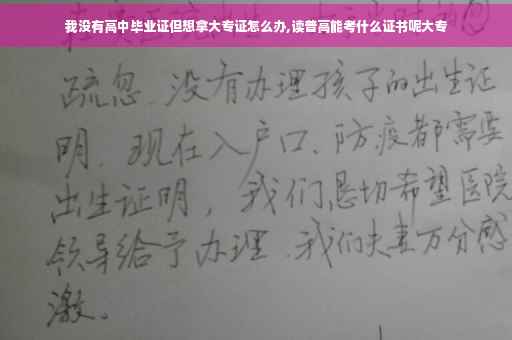 我没有高中毕业证但想拿大专证怎么办,读普高能考什么证书呢大专
疏忽、没有办理孩子的出生证
明、现在入户口、防疫都需要
出生证明，我们恳切希望医院
领导给予办理、我们夫妻万分感
激。